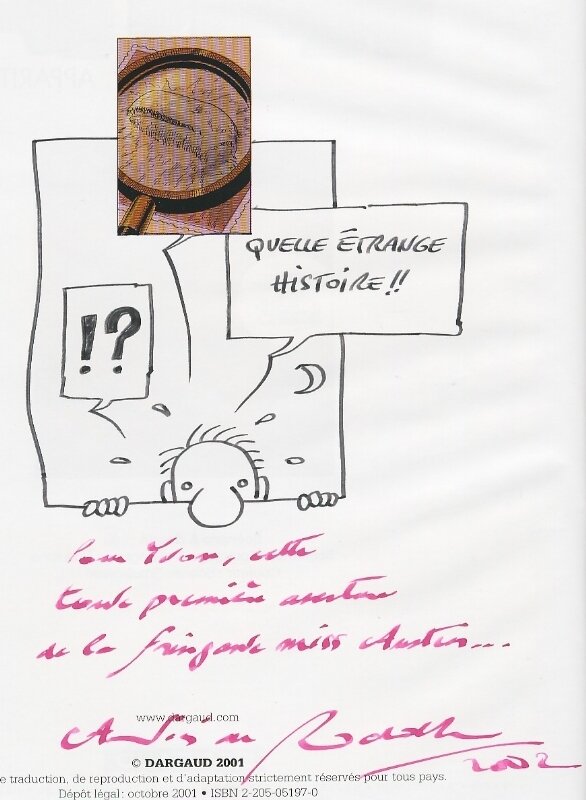 QUELLE ÉTRANGE
HISTOIRE!!
!?
Pour Yvon, cette
toute première aventure
de la fringante miss
www.dargaud.com
2002
© DARGAUD 2001
e traduction, de reproduction et d'adaptation strictement réservés pour tous pays.
Dépôt légal: octobre 2001 • ISBN 2-205-05197-0